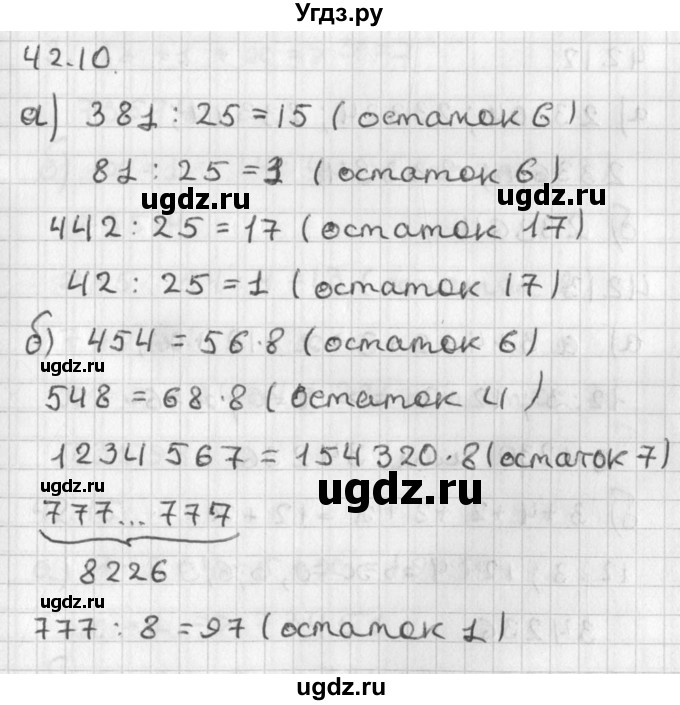 Угдз.ру
42.10.
а) 381 : 25 = 15 (остаток 6)
81 : 25 = 3 (остаток 6)
ugdz.ru ugdz.ru
442 : 25 = 17 (остаток 17)
42 : 25 = 1 (остаток 17)
б) 454 = 56·8 (остаток 6)
ugdz.ru
548 = 68·8 (остаток 4)
1234 567 = 154320·8 (остаток 7)
ugdz.ru
777... 777
8226
ugdz.ru
777 : 8 = 97 (остаток 1)
ugdz.ru